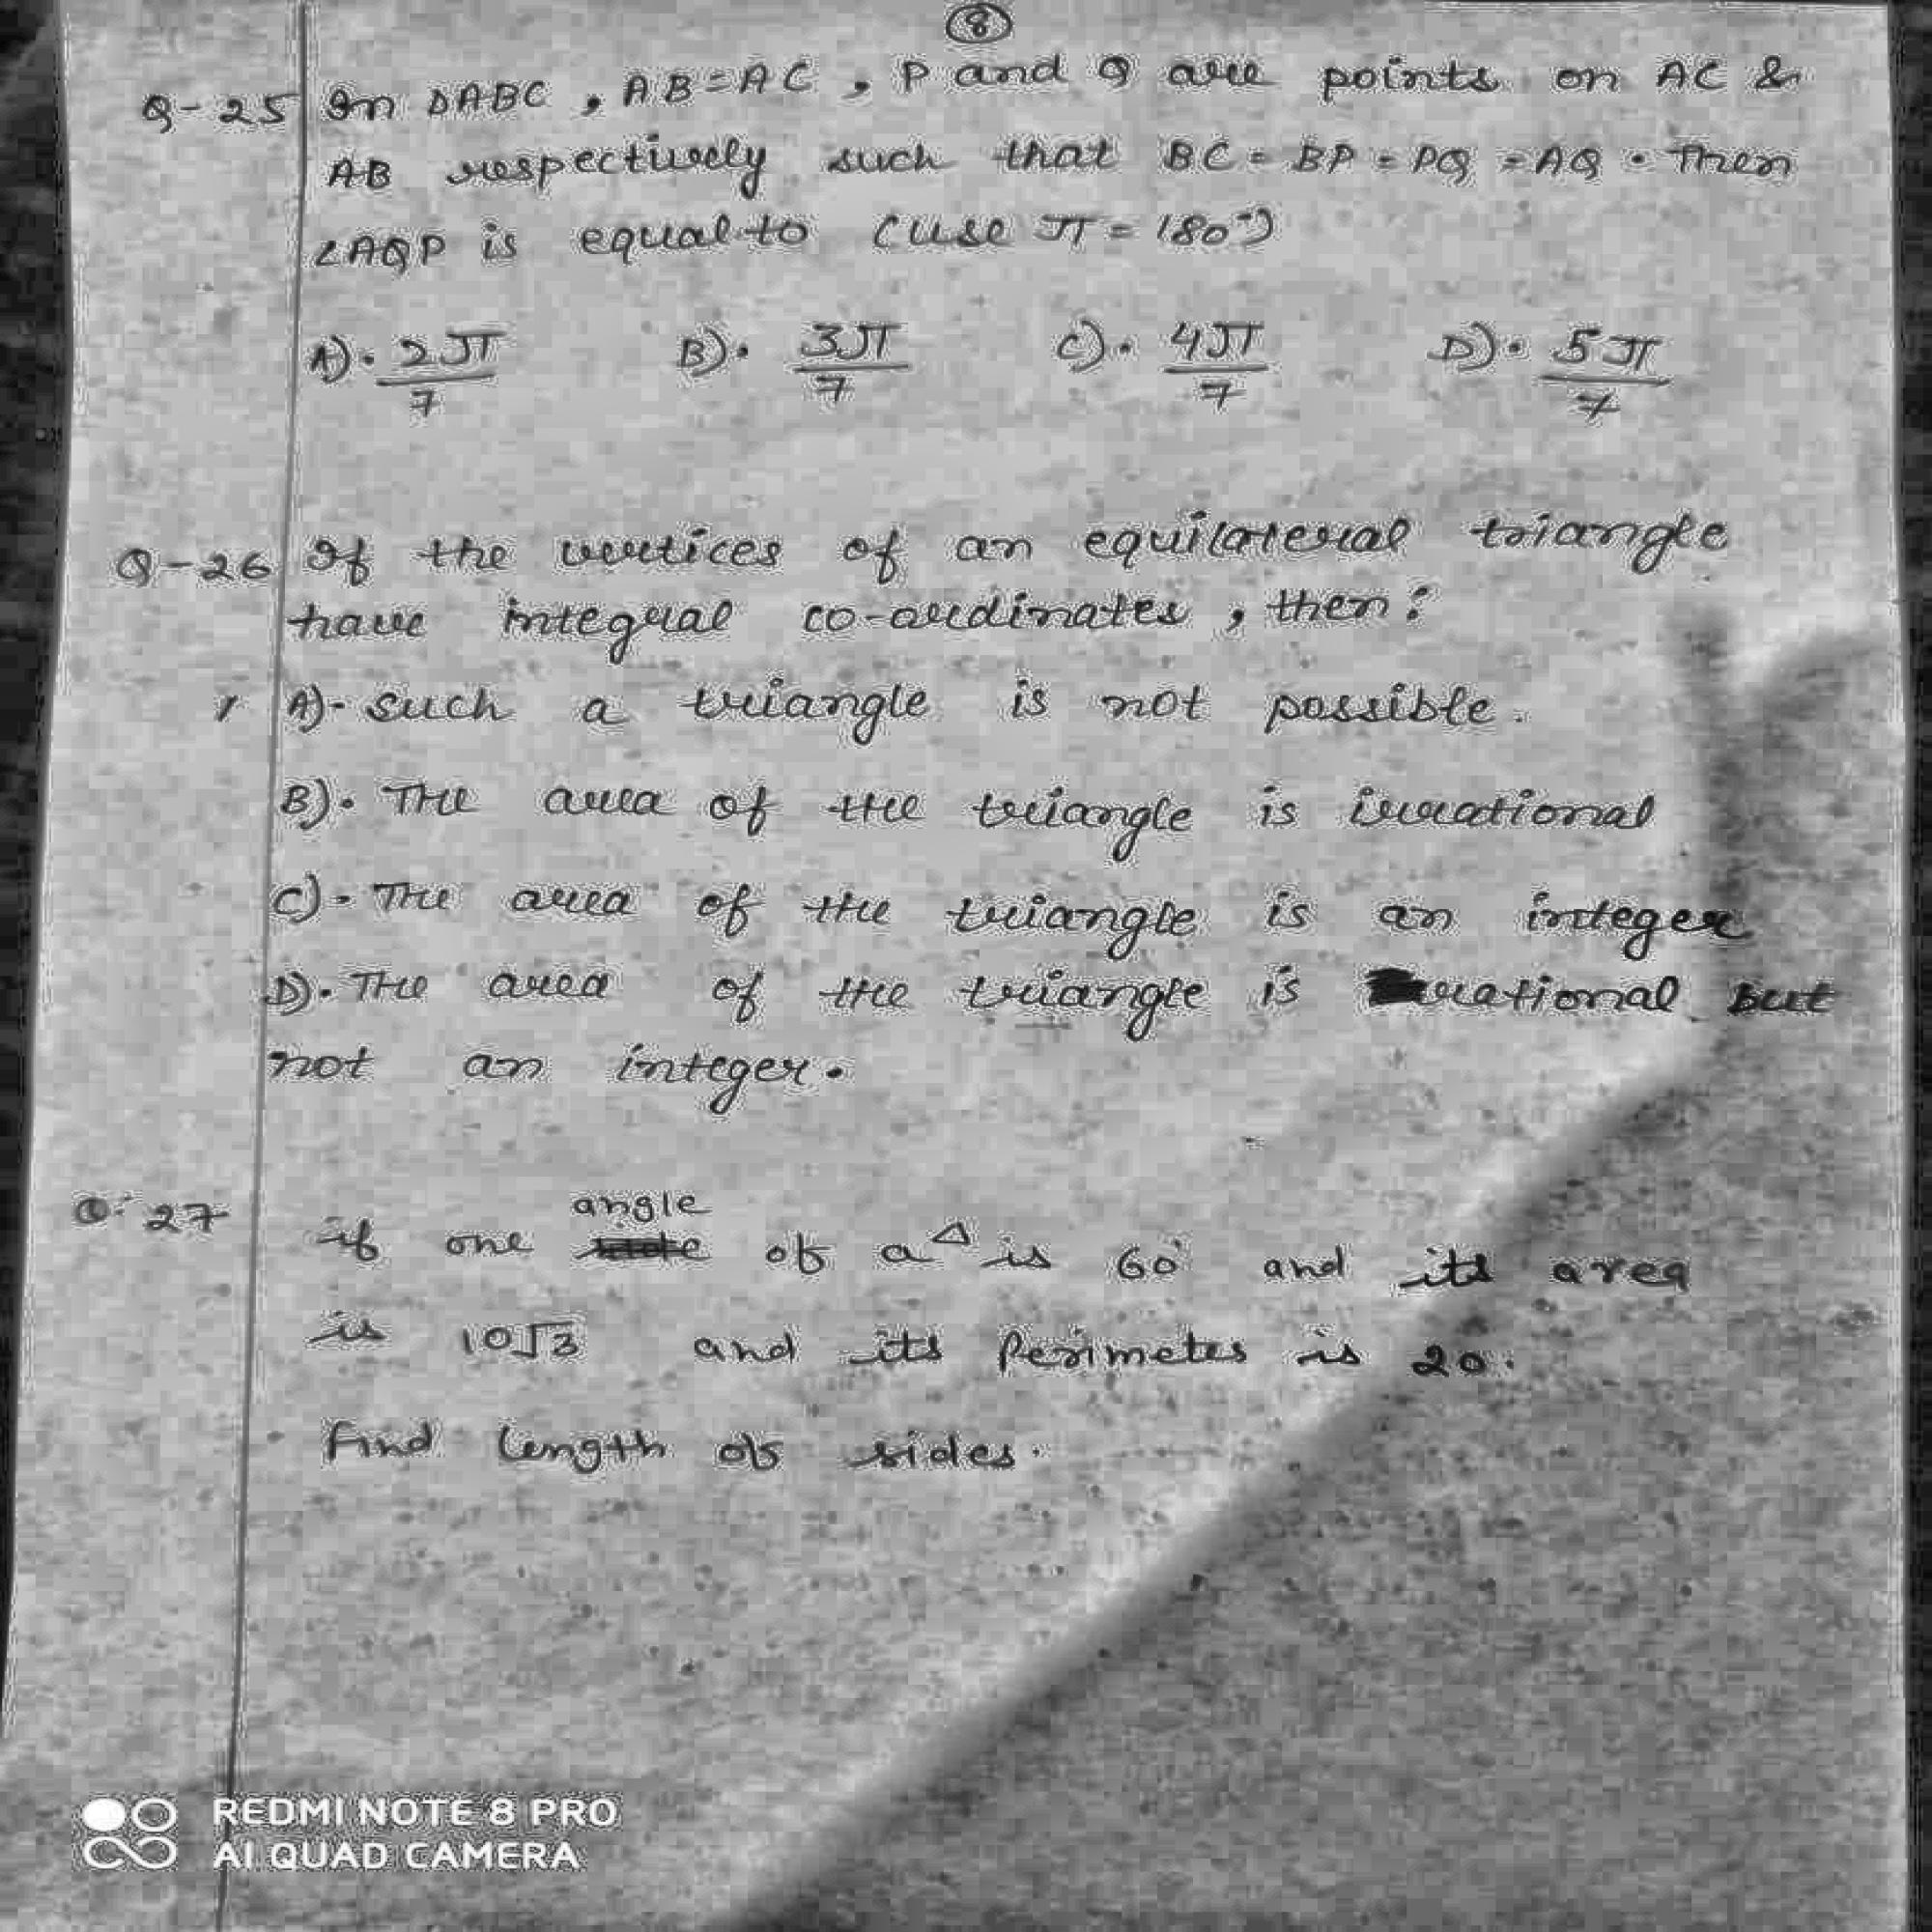 8
Q-25 In ΔABC, AB=AC, P and Q are points on AC &
AB respectively such that BC = BP = PQ = AQ. Then
∠AQP is equal to (use π = 180°)
A). 2π/7 B). 3π/7 C). 4π/7 D). 5π/7
Q-26 If the vertices of an equilateral triangle
have integral co-ordinates, then:
A)- such a triangle is not possible.
B). The area of the triangle is irrational
C)- The area of the triangle is an integer
D). The area of the triangle is rational but
not an integer.
angle
Q. 27 if one of a Δ is 60° and its area
is 10√3 and its Perimetes is 20.
Find length of sides.
REDMI NOTE 8 PRO
AI QUAD CAMERA